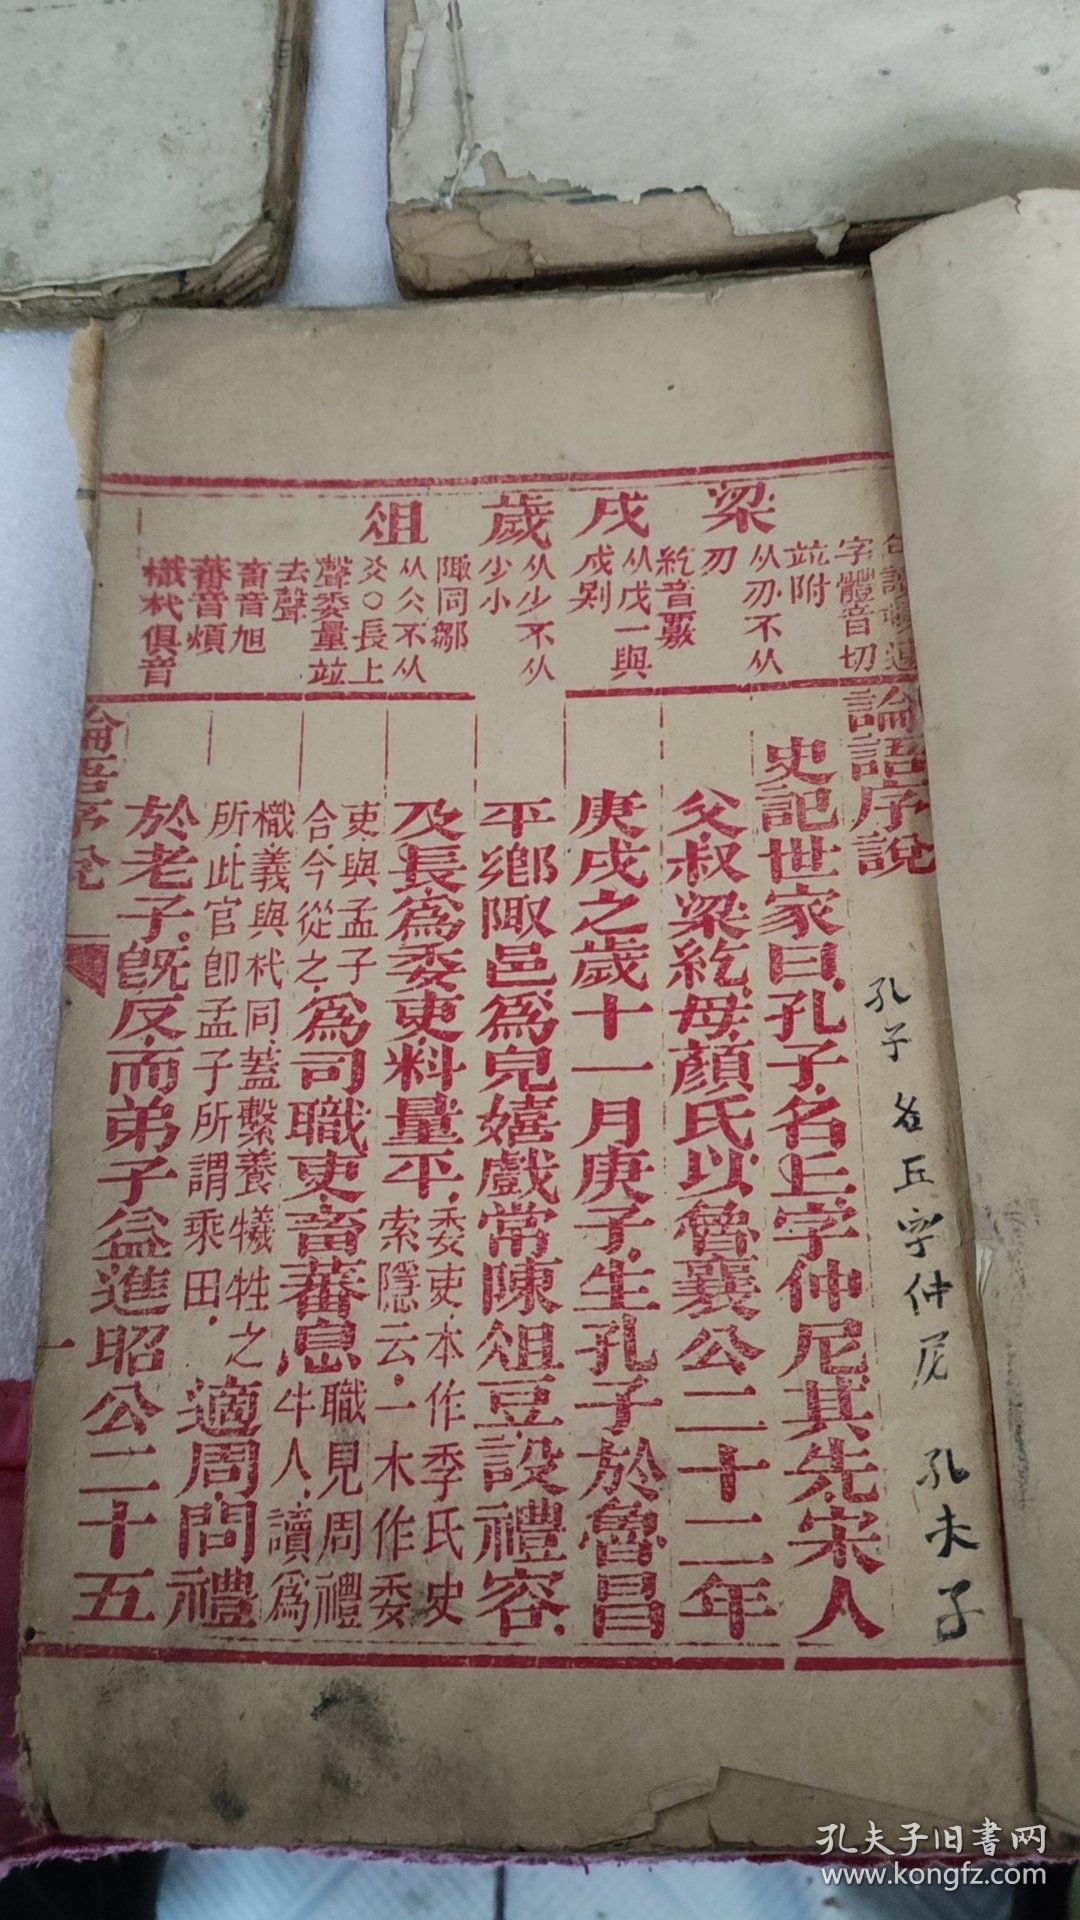 字體音切
竝附
梁
从刅不从
刃
紇音覈
戌
从戊一與
戍别
歲
从少不从
少小
陬同鄒
俎
从仌不从
爻○長上
聲委量竝
去聲
畜音旭
蕃音煩
樴杙俱音
論語序說
史記世家曰孔子名丘字仲尼其先宋人
父叔梁紇母顏氏以魯襄公二十二年
庚戌之歲十一月庚子生孔子於魯昌
平鄉陬邑爲兒嬉戲常陳俎豆設禮容
及長爲委吏料量平委吏本作季氏史
索隱云一本作委
吏與孟子
合今從之爲司職吏畜蕃息職見周禮
牛人讀爲
樴義與杙同蓋繫養犧牲之
所此官卽孟子所謂乘田適周問禮
於老子旣反而弟子益進昭公二十五
論語序說
一
孔子 名丘字仲尼 孔夫子
孔夫子旧書网
www.kongfz.com